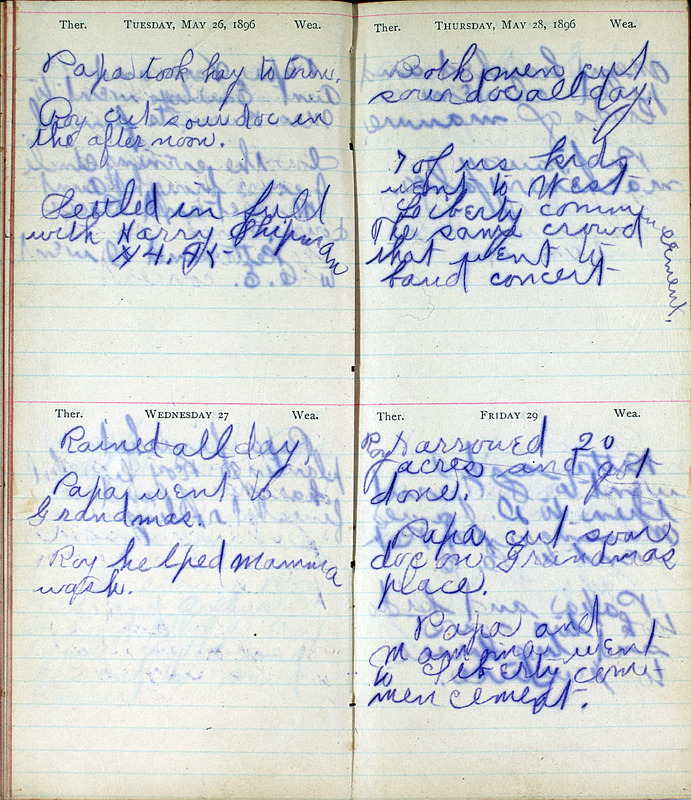 Ther. TUESDAY, MAY 26, 1896 Wea.
Papa took hay to town.
Roy cut sourdoc in
the afternoon.
Settled in full
with Harry Shipman
$4.95
Ther. WEDNESDAY 27 Wea.
Rained all day
Papa went to
Grandmas.
Roy helped mamma
wash.
Ther. THURSDAY, MAY 28, 1896 Wea.
Both men cut
sourdoc all day.
7 of us kids
went to West
Liberty commencement.
The same crowd
that went to
band concert
Ther. FRIDAY 29 Wea.
Roy Harrowed 20
acres and got
done.
Papa cut sour
doc on Grandmas
place.
Papa and
Mamma went
to Liberty com-
mencement.